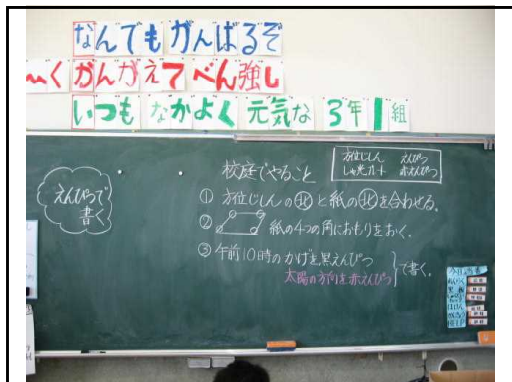 なんでも がんばるぞ
く かんがえて べん強し
いつも なかよく 元気な 3年1組
えんぴつで
書く
校庭でやること
方位じしん えんぴつ
しゃ光カード 赤えんぴつ
① 方位じしんの北と紙の北を合わせる。
② 紙の4つの角におもりをおく。
③ 午前10時のかげを黒えんぴつ
太陽の方向を赤えんぴつ
で書く。